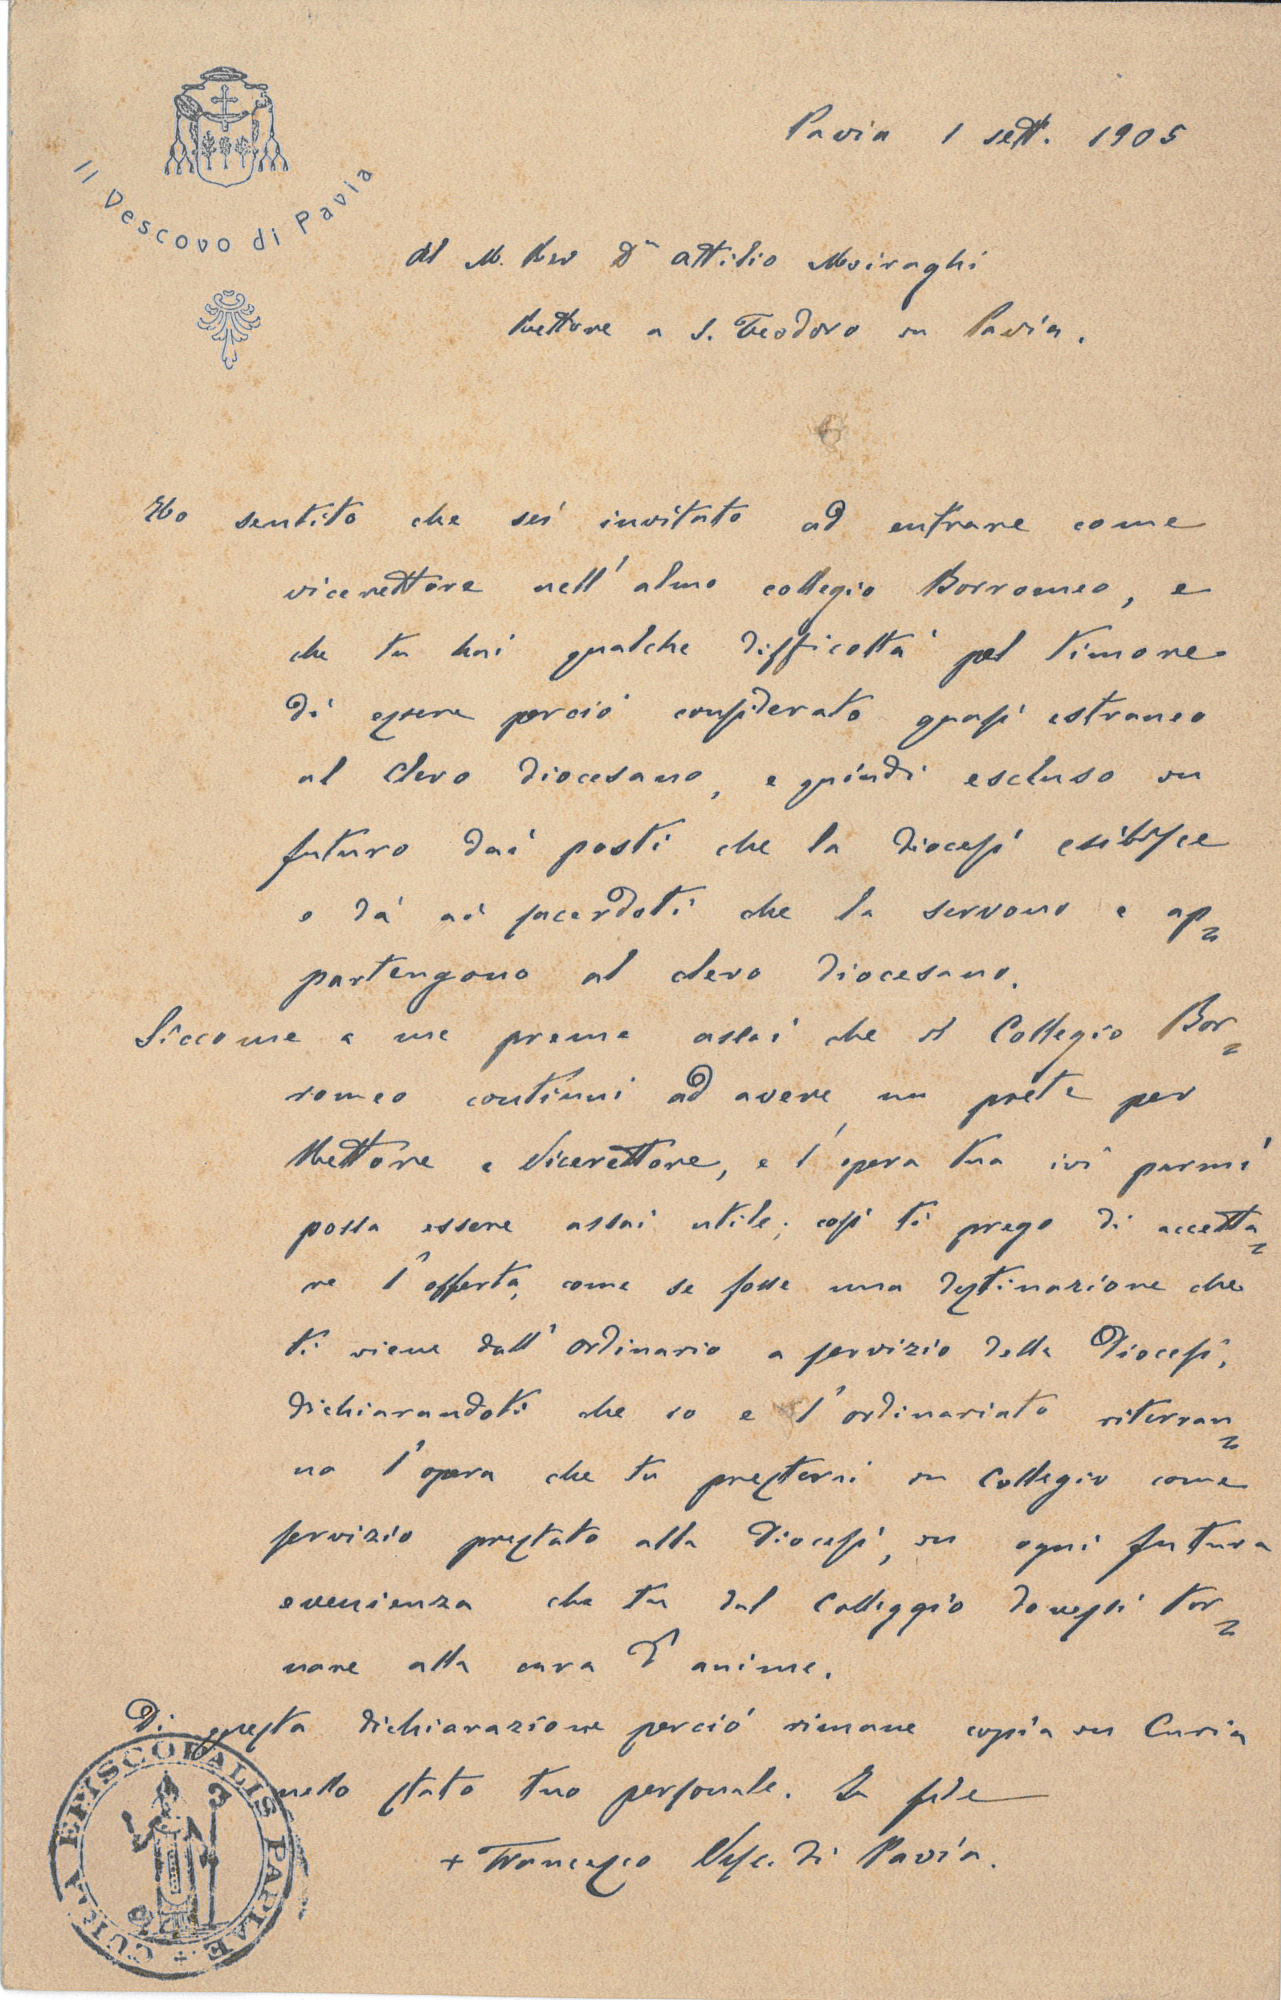 Il Vescovo di Pavia
Pavia 1 sett. 1905
Al M. Rev Dn Attilio Moiraghi
Rettore a S. Teodoro in Pavia.
Ho sentito che sei invitato ad entrare come
vicerettore nell'almo collegio Borromeo, e
che tu hai qualche difficoltà pel timore
di essere perciò considerato quasi estraneo
al Clero diocesano, e quindi escluso in
futuro dai posti che la diocesi esibisce
o dà ai sacerdoti che la servono e ap=
partengono al clero diocesano.
Siccome a me preme assai che il Collegio Bor=
romeo continui ad avere un prete per
Rettore e Vicerettore, e l'opera tua ivi parmi
possa essere assai utile; così ti prego di accetta=
re l'offerta, come se fosse una destinazione che
ti viene dall'ordinario a servizio della Diocesi,
dichiarandoti che io e l'ordinariato riterran=
no l'opera che tu presterai in Collegio come
servizio prestato alla Diocesi, in ogni futura
evenienza che tu dal Colleggio dovessi tor=
nare alla cura d'anime.
Di questa dichiarazione perciò rimane copia in Curia
nello stato tuo personale. In fede
+ Francesco Vesc. di Pavia.
CURIA EPISCOPALIS PAPIAE +